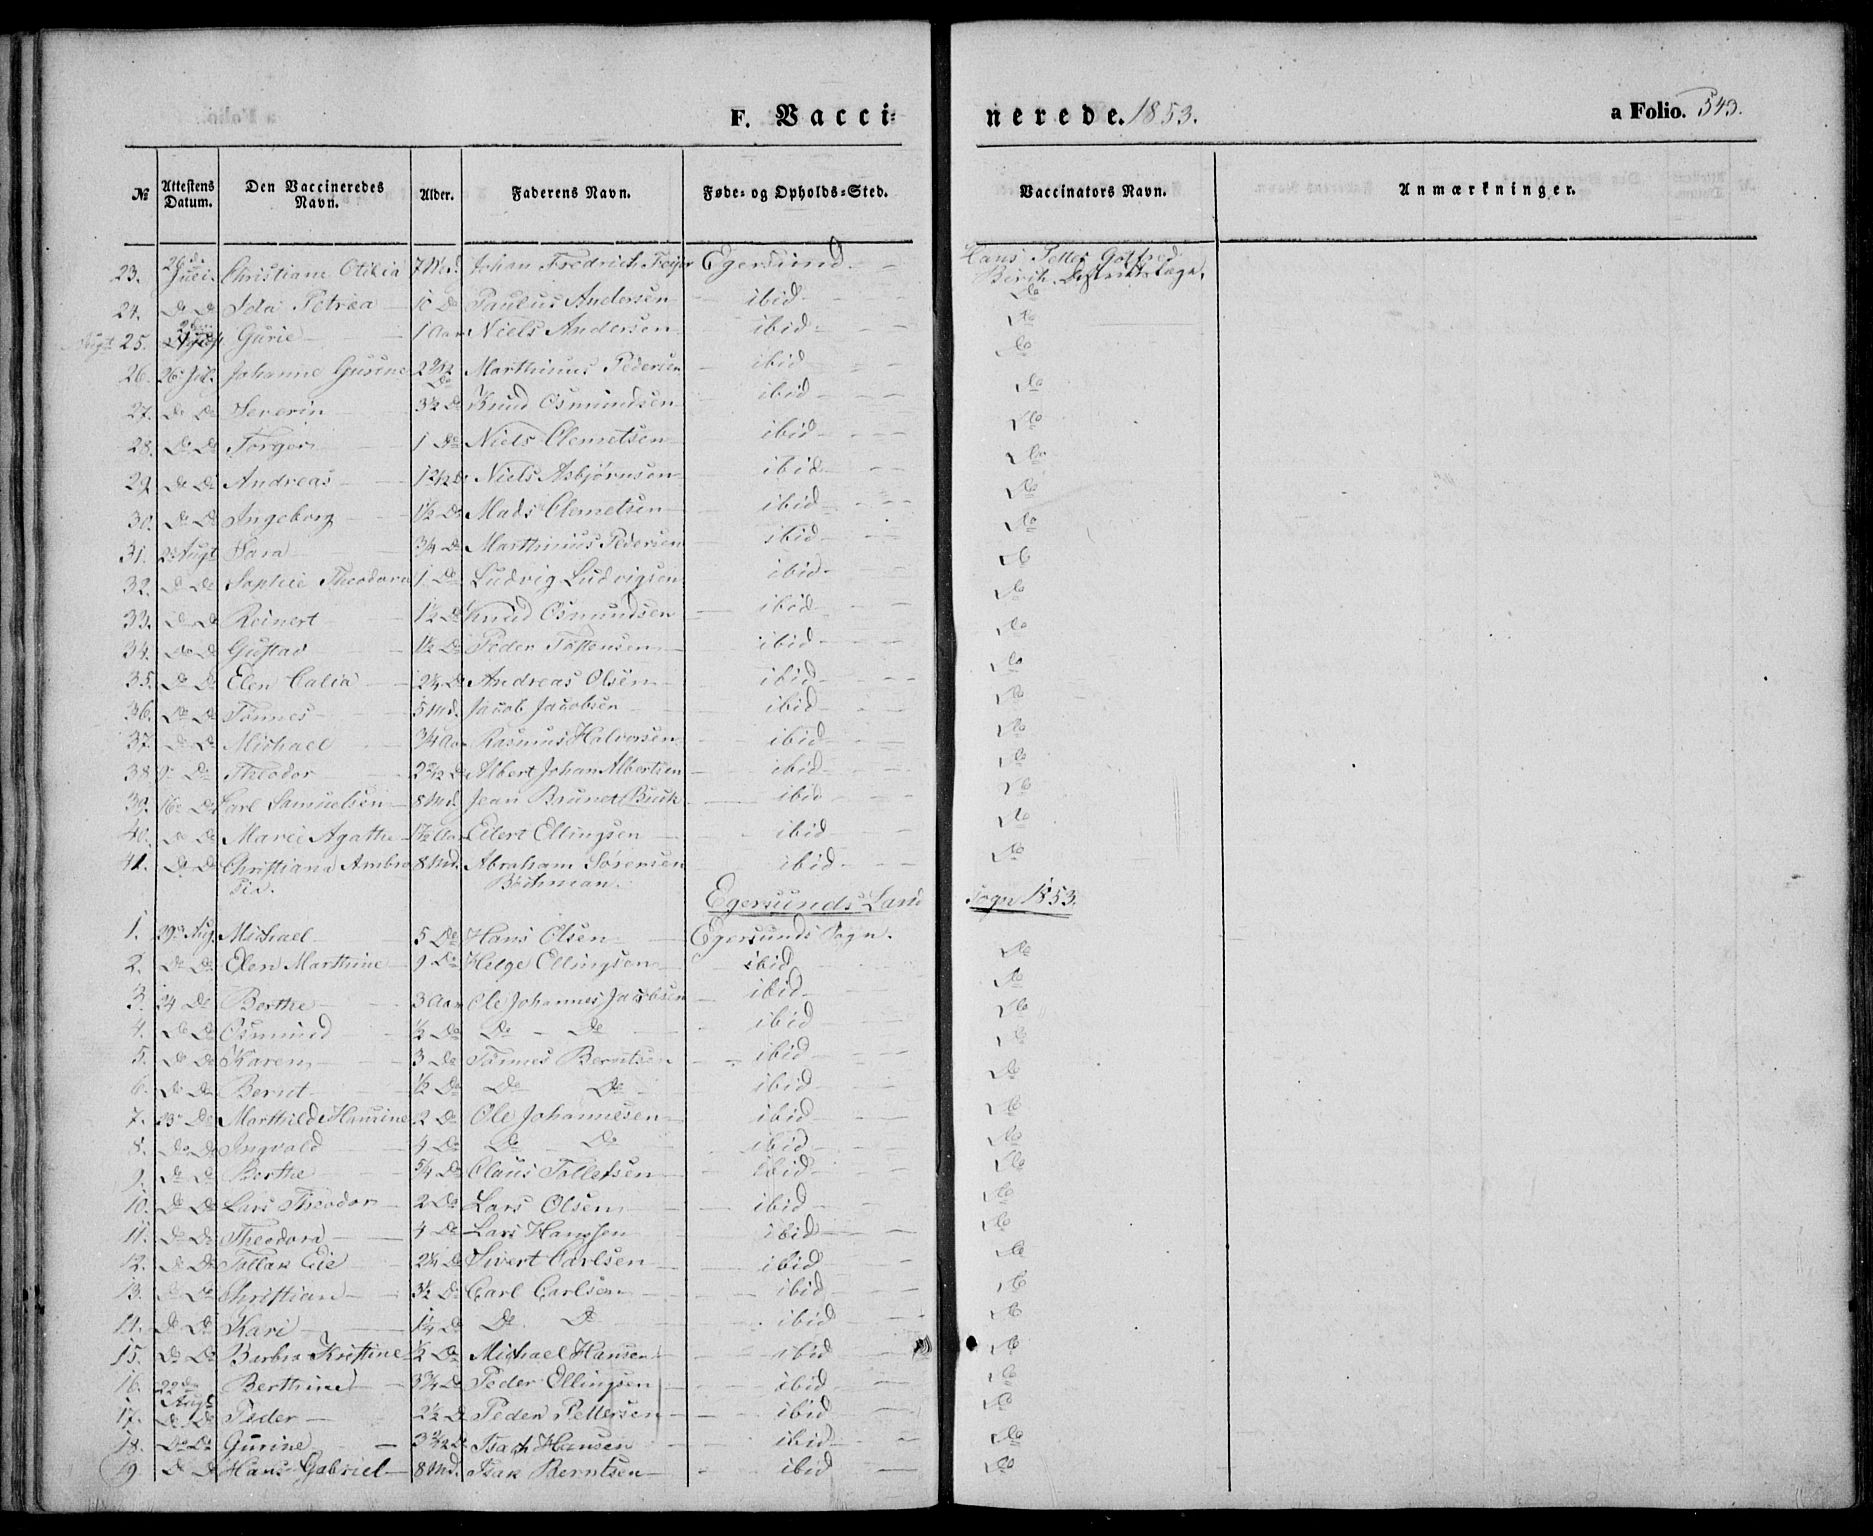 F. Vacci-
nerede. 1853.
a Folio. 543.
№ Attestens Datum. Den Vaccineredes Navn. Alder. Faderens Navn. Føde- og Opholds-Sted. Vaccinators Navn. Anmærkninger.
23. 26de Juli Christiane Otilia 7 Md. Johan Fredrich Feyer Egersund. Hans Petter Gotfred
Birch. Distriktslæge.
24. Do Do Ida Petrea 10 Do Paulus Andersen ibid Do
25. Gurie 1 Aar Niels Andersen ibid Do
26. 26 Jul. Johanne Gurine Marthinus Pedersen ibid Do
27. Do Do Severin 3½ Do Knud Osmundsen ibid Do
28. Do Do Torger 1 Do Niels Clemetsen ibid Do
29. Do Do Andreas Niels Asbjørnsen ibid Do
30. Do Do Ingeborg 1½ Do Mads Clemetsen ibid Do
31. 2 Augt Sara 3/4 Do Marthinus Pedersen ibid Do
32. Do Do Sophie Theodora 1 Do Ludvig Ludvigsen ibid Do
33. Do Do Reinert 1½ Do Knud Osmundsen ibid Do
34. Do Do Gustav 1½ Do Peder Tostensen ibid Do
35. Do Do Elen Calia 2¼ Do Andreas Olsen ibid Do
36. Do Do Tønnes 5 Md. Jacob Jacobsen ibid Do
37. Do Do Michael 3/4 Aar Rasmus Halvorsen ibid Do
38. 9 Do Theodor Albert Johan Albertsen ibid Do
39. 16 Do Carl Samuelsen 8 Md. Jean Brunet Buch ibid Do
40. Do Do Marie Agathe 1½ Aar Eilert Ellingsen ibid Do
41. Do Do Christiana Ambro 8 Md. Abraham Sørensen ibid Do
sia. Bøchman.
Egersunds Land Sogn 1853.
1. Aug. Michael 5 Do Hans Olsen Egersunds Sogn. Do
2. Do Do Elen Marthine 9 Do Helge Ellingsen ibid Do
3. 24 Do Berthe 3 Aar Ole Johannes Jacobsen ibid Do
4. Do Do Osmund ½ Do Do Do ibid Do
5. Do Do Karen 3 Do Tønnes Berntsen ibid Do
6. Do Do Bernt ½ Do Do Do ibid Do
7. 23 Do Marthilde Hansine 2 Do Ole Johannesen ibid Do
8. Do Do Ingvald 4 Do Do Do ibid Do
9. Do Do Berthe 5/4 Do Claus Tollefsen ibid Do
10. Do Do Lars Theodor 2 Do Lars Olsen ibid Do
11. Do Do Theodora 4 Do Lars Hanssen ibid Do
12. Do Do Tollak Eie 2¼ Do Sivert Carlsen ibid Do
13. Do Do Christian 3½ Do Carl Carlsen ibid Do
14. Do Do Kari 1¼ Do Do Do ibid Do
15. Do Do Barbra Kristine ½ Do Michael Hansen ibid Do
16. 22de Berthine 3¾ Do Peder Ellingsen ibid Do
Augt
17. Do Do Peder 2½ Do Peder Pettersen ibid Do
18. Do Do Gurine Isach Hansen ibid Do
19 Do Do Hans Gabriel 8 Md. Isak Berntsen ibid Do